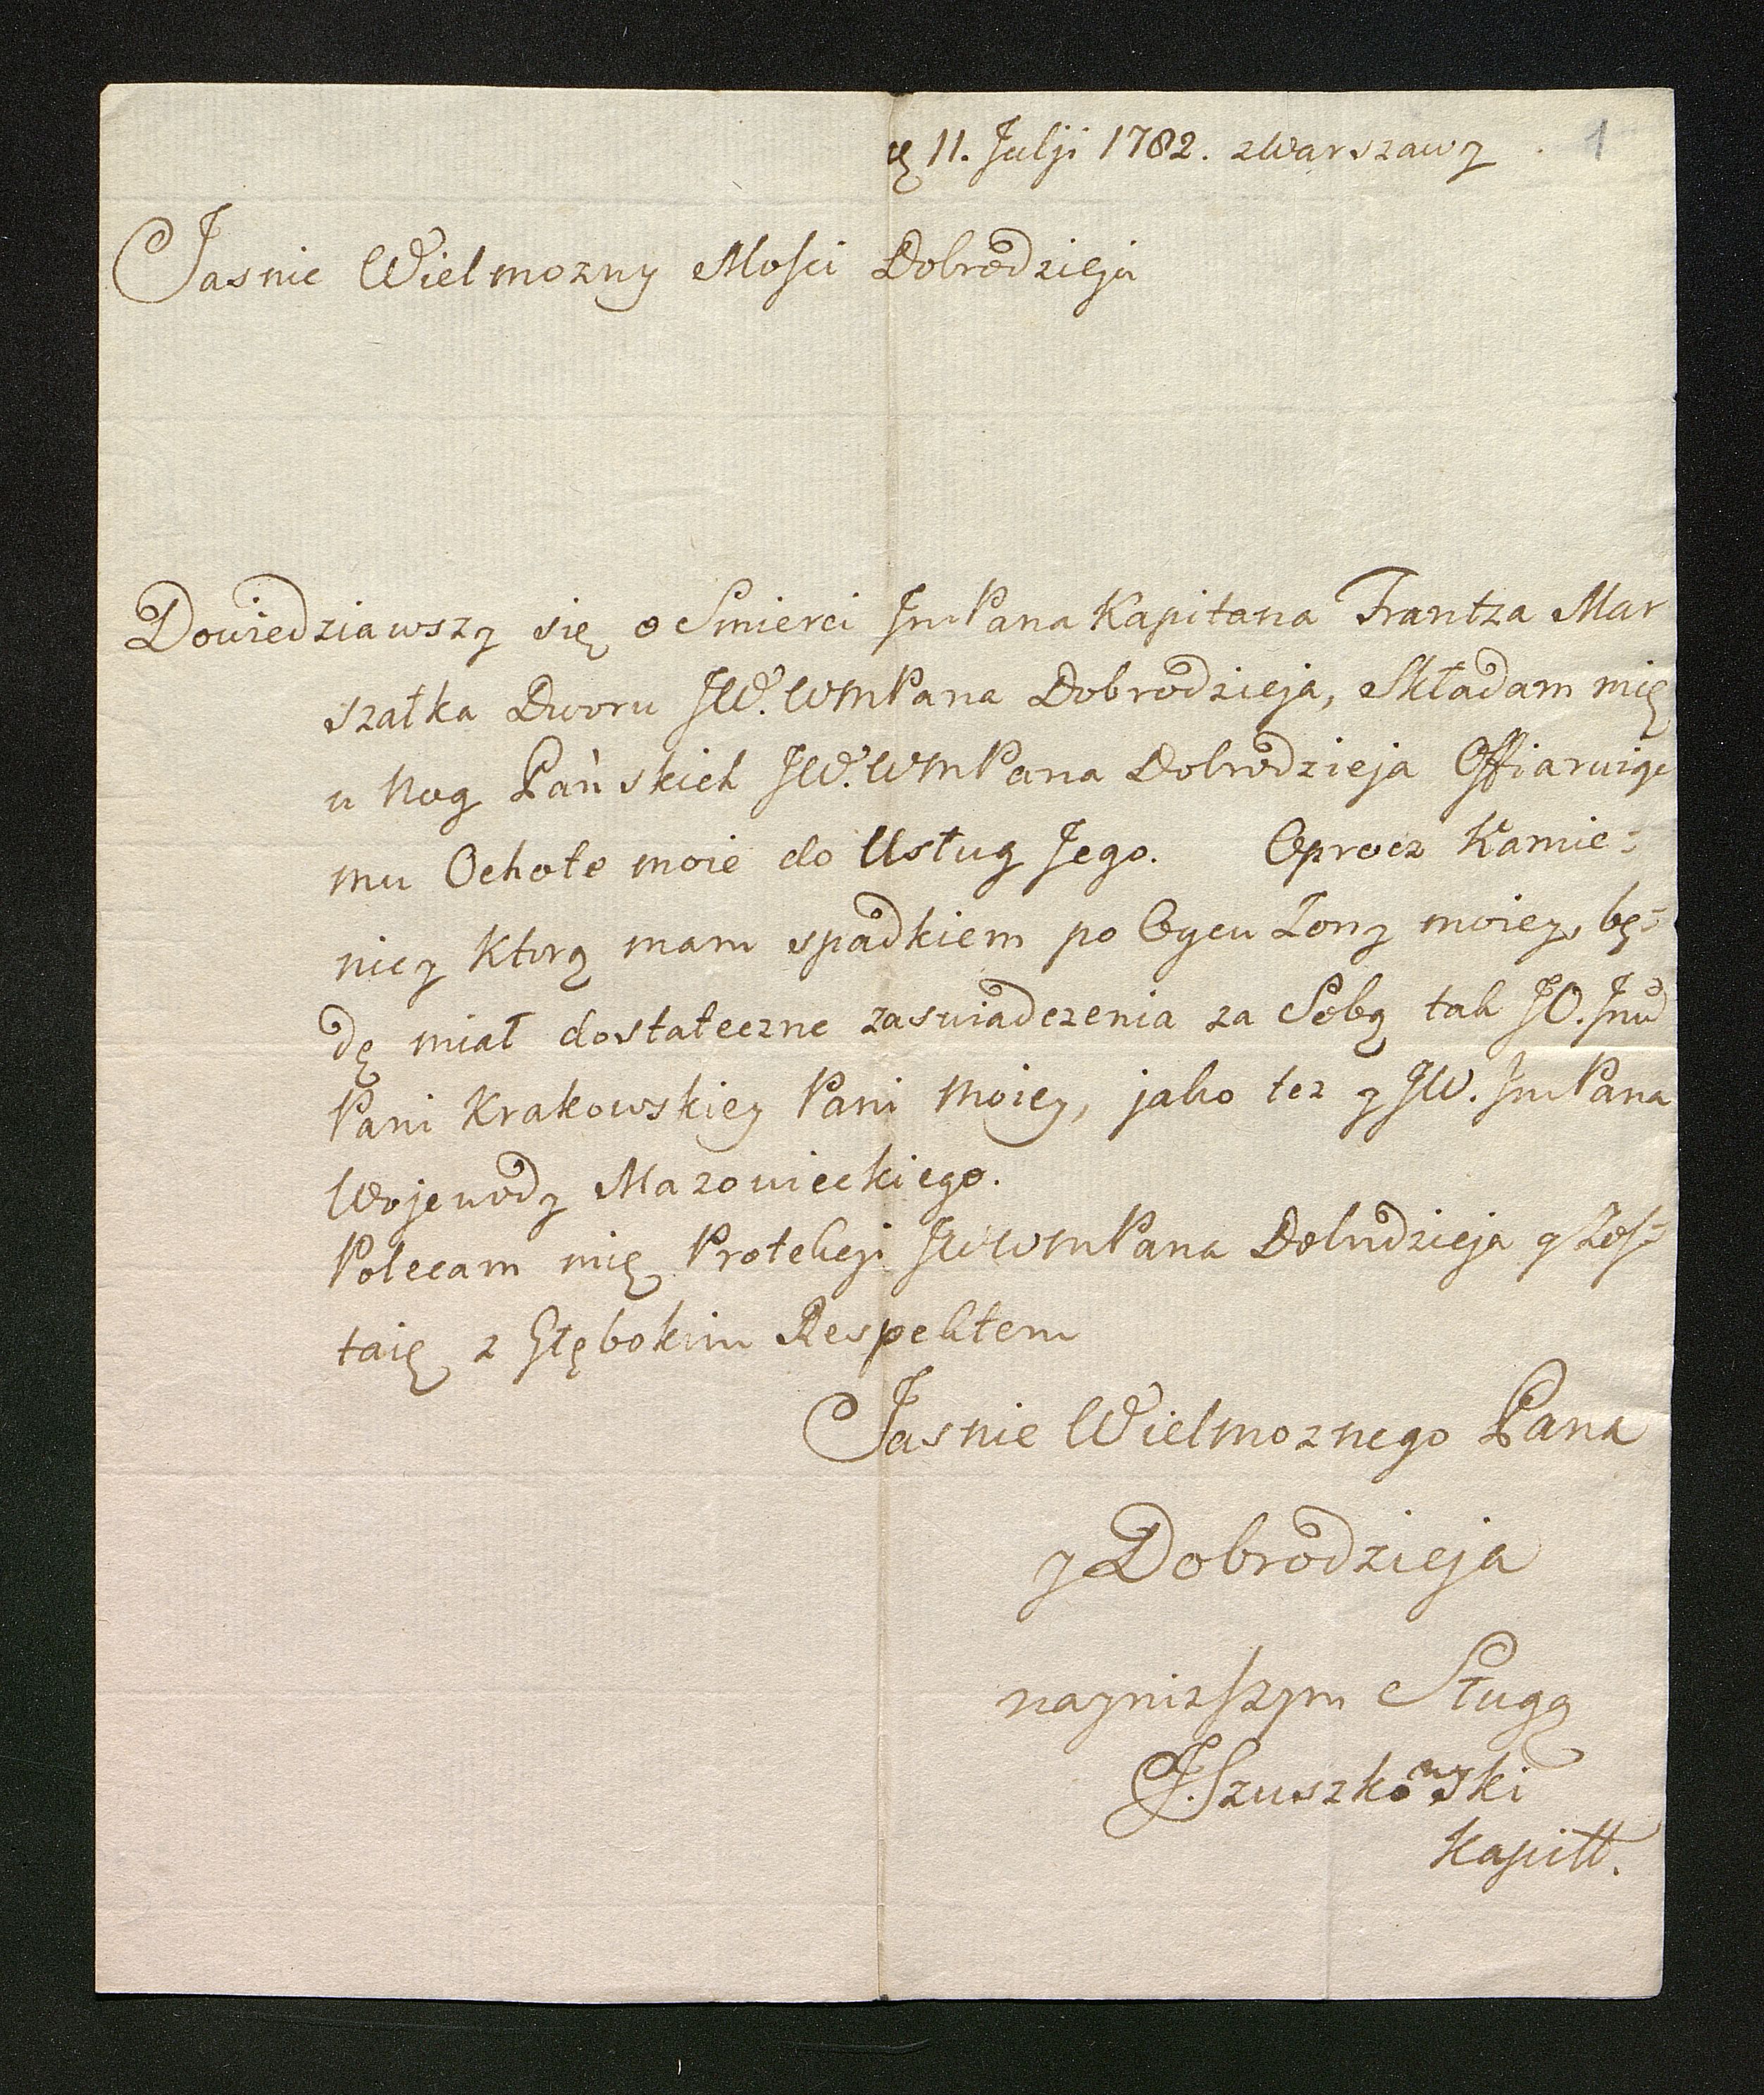 11. Julji 1782. zWarszawy 1
Jasnie Wielmozny Mości Dobrodzieja
Dowiedziawszy się o Smierci JmPana Kapitana Frantza Mar
szałka Dworu JW. WMPana Dobrodzieja, Składam mię
u Nog Pańskich JW. WMPana Dobrodzieja Offiaruię
mu Ochote moie do Usług Jego. Oprocz Kamie=
nicy Ktorą mam spadkiem po Oycu Żony moiey, bę=
dę miał dostateczne zaswiadczenia za Sobą tak JO.
Pani Krakowskiey Pani Moiey, jako tez y JW. JmPana
Wojewody Mazowieckiego.
Polecam mię Protekcji JWWMPana Dobrodzieja y Zos=
taię z Głębokim Respektem
Jasnie Wielmoznego Pana
y Dobrodzieja
naynizszym Sługą
J. Szuszkowski
Kapitt.